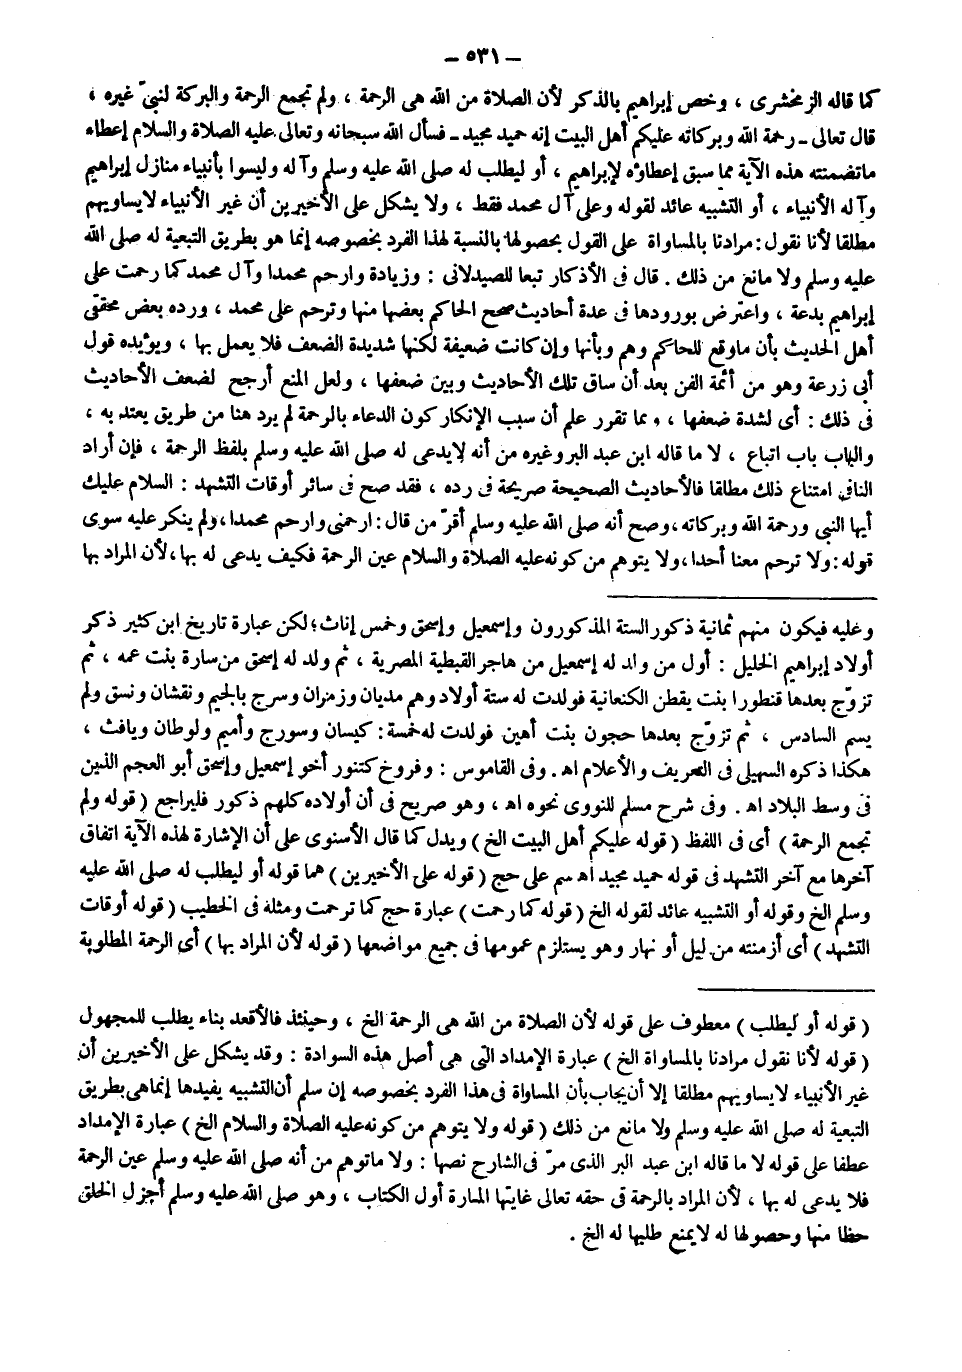 – ٥٣١ –
كما قاله الزمخشرى ، وخص إبراهيم بالذكر لأن الصلاة من الله هى الرحمة ، ولم تجمع الرحمة والبركة لنبىّ غيره ،
قال تعالى ـ رحمة الله وبركاته عليكم أهل البيت إنه حميد مجيد ـ فسأل الله سبحانه وتعالى عليه الصلاة والسلام إعطاء
ماتضمنته هذه الآية مما سبق إعطاؤه لإبراهيم ، أو ليطلب له صلى الله عليه وسلم وآله وليسوا بأنبياء منازل إبراهيم
وآله الأنبياء ، أو التشبيه عائد لقوله وعلى آل محمد فقط ، ولا يشكل على الأخيرين أن غير الأنبياء لايساويهم
مطلقا لأنا نقول : مرادنا بالمساواة على القول بحصولها بالنسبة لهذا الفرد بخصوصه إنما هو بطريق التبعية له صلى الله
عليه وسلم ولا مانع من ذلك . قال فى الأذكار تبعا للصيدلانى : وزيادة وارحم محمدا وآل محمد كما رحمت على
إبراهيم بدعة ، واعترض بورودها فى عدة أحاديث صحح الحاكم بعضها منها وترحم على محمد ، ورده بعض محققى
أهل الحديث بأن ماوقع للحاكم وهم وبأنها وإن كانت ضعيفة لكنها شديدة الضعف فلا يعمل بها ، ويؤيده قول
أبى زرعة وهو من أئمة الفن بعد أن ساق تلك الأحاديث وبين ضعفها ، ولعل المنع أرجح لضعف الأحاديث
فى ذلك : أى لشدة ضعفها ، ومما تقرر علم أن سبب الإنكار كون الدعاء بالرحمة لم يرد هنا من طريق يعتد به ،
والباب باب اتباع ، لا ما قاله ابن عبد البر وغيره من أنه لايدعى له صلى الله عليه وسلم بلفظ الرحمة ، فإن أراد
النافى امتناع ذلك مطلقا فالأحاديث الصحيحة صريحة فى رده ، فقد صح فى سائر أوقات التشهد : السلام عليك
أيها النبى ورحمة الله وبركاته ، وصح أنه صلى الله عليه وسلم أقرّ من قال : ارحمنى وارحم محمدا ، ولم ينكر عليه سوى
قوله : ولا ترحم معنا أحدا ، ولا يتوهم من كونه عليه الصلاة والسلام عين الرحمة فكيف يدعى له بها ، لأن المراد بها
وعليه فيكون منهم ثمانية ذكور الستة المذكورون وإسمعيل وإسحق وخمس إناث ؛ لكن عبارة تاريخ ابن كثير ذكر
أولاد إبراهيم الخليل : أول من ولد له إسمعيل من هاجر القبطية المصرية ، ثم ولد له إسحق من سارة بنت عمه ، ثم
تزوّج بعدها قنطورا بنت يقطن الكنعانية فولدت له ستة أولاد وهم مديان وزمران وسرج بالجيم ونقشان ونسق ولم
يسم السادس ، ثم تزوّج بعدها حجون بنت أهين فولدت له خمسة : كيسان وسورج وأميم ولوطان ويافث ،
هكذا ذكره السهيلى فى التعريف والأعلام اهـ . وفى القاموس : وفروخ كتنور أخو إسمعيل وإسحق أبو العجم الذين
فى وسط البلاد اهـ . وفى شرح مسلم للنووى نحوه اهـ ، وهو صريح فى أن أولاده كلهم ذكور فليراجع ( قوله ولم
تجمع الرحمة ) أى فى اللفظ ( قوله عليكم أهل البيت الخ ) ويدل كما قال الأسنوى على أن الإشارة لهذه الآية اتفاق
آخرها مع آخر التشهد فى قوله حميد مجيد اهـ سم على حج ( قوله على الأخيرين ) هما قوله أو ليطلب له صلى الله عليه
وسلم الخ وقوله أو التشبيه عائد لقوله الخ ( قوله كما رحمت ) عبارة حج كما ترحمت ومثله فى الخطيب ( قوله أوقات
التشهد ) أى أزمنته من ليل أو نهار وهو يستلزم عمومها فى جميع مواضعها ( قوله لأن المراد بها ) أى الرحمة المطلوبة
( قوله أو ليطلب ) معطوف على قوله لأن الصلاة من الله هى الرحمة الخ ، وحينئذ فالأقعد بناء يطلب للمجهول
( قوله لأنا نقول مرادنا بالمساواة الخ ) عبارة الإمداد التى هى أصل هذه السوادة : وقد يشكل على الأخيرين أن
غير الأنبياء لايساويهم مطلقا إلا أن يجاب بأن المساواة فى هذا الفرد بخصوصه إن سلم أن التشبيه يفيدها إنما هى بطريق
التبعية له صلى الله عليه وسلم ولا مانع من ذلك ( قوله ولا يتوهم من كونه عليه الصلاة والسلام الخ ) عبارة الإمداد
عطفا على قوله لا ما قاله ابن عبد البر الذى مرّ فى الشارح نصها : ولا ماتوهم من أنه صلى الله عليه وسلم عين الرحمة
فلا يدعى له بها ، لأن المراد بالرحمة فى حقه تعالى غايتها المارة أول الكتاب ، وهو صلى الله عليه وسلم أجزل الخلق
حظا منها وحصولها له لايمنع طلبها له الخ .